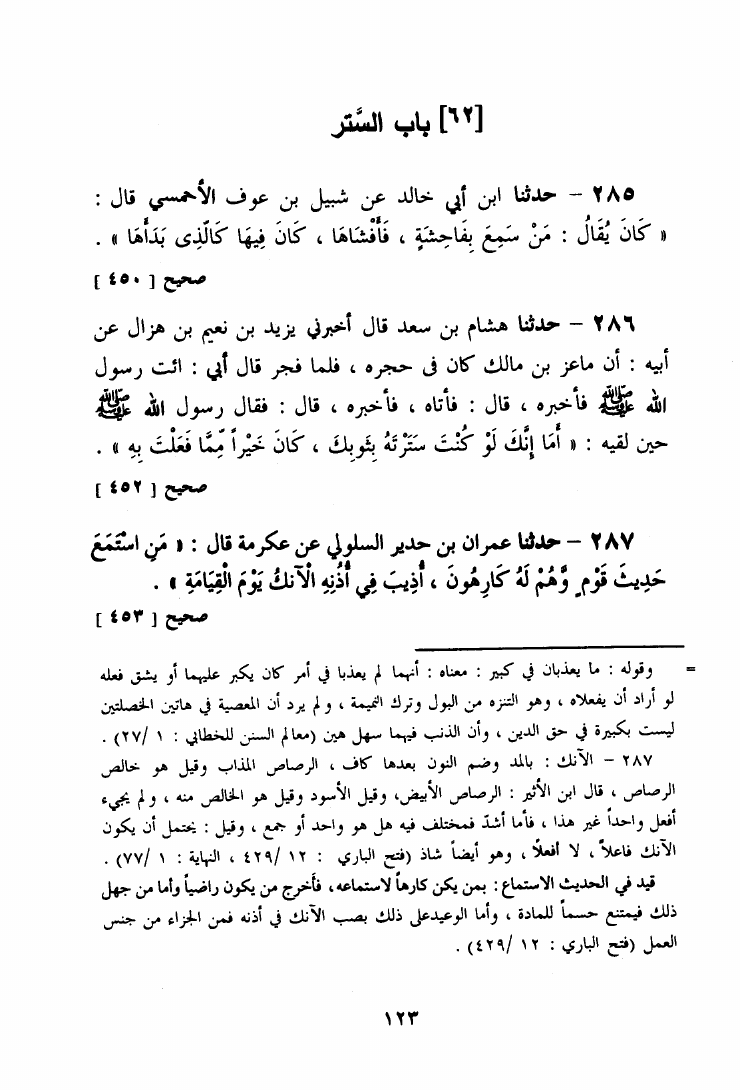 [٦٢] باب السَّتر
٢٨٥ – حدثنا ابن أبي خالد عن شبيل بن عوف الأحمسي قال :
« كَانَ يُقَالُ : مَنْ سَمِعَ بِفَاحِشَةٍ ، فَأَفْشَاهَا ، كَانَ فِيهَا كَالَّذِى بَدَأَهَا » .
صحيح [ ٤٥٠ ]
٢٨٦ – حدثنا هشام بن سعد قال أخبرني يزيد بن نعيم بن هزال عن
أبيه : أن ماعز بن مالك كان فى حجره ، فلما فجر قال أبي : ائت رسول
الله ﷺ فأخبره ، قال : فأتاه ، فأخبره ، قال : فقال رسول الله ﷺ
حين لقيه : « أَمَا إِنَّكَ لَوْ كُنْتَ سَتَرْتَهُ بِثَوبِكَ ، كَانَ خَيْراً مِّمَّا فَعَلْتَ بِهِ » .
صحيح [ ٤٥٢ ]
٢٨٧ – حدثنا عمران بن حدير السلولي عن عكرمة قال : « مَنِ اسْتَمَعَ
حَدِيثَ قَوْمٍ وَّهُمْ لَهُ كَارِهُونَ ، أُذِيبَ فِي أُذُنِهِ الْآنكُ يَوْمَ الْقِيَامَةِ » .
صحيح [ ٤٥٣ ]
= وقوله : ما يعذبان في كبير : معناه : أنهما لم يعذبا في أمر كان يكبر عليهما أو يشق فعله
لو أراد أن يفعلاه ، وهو التنزه من البول وترك النميمة ، ولم يرد أن المعصية في هاتين الخصلتين
ليست بكبيرة في حق الدين ، وأن الذنب فيهما سهل هين (معالم السنن للخطابي : ١ /٢٧) .
٢٨٧ – الآنك : بالمد وضم النون بعدها كاف ، الرصاص المذاب وقيل هو خالص
الرصاص ، قال ابن الأثير : الرصاص الأبيض، وقيل الأسود وقيل هو الخالص منه ، ولم يجيء
أفعل واحداً غير هذا ، فأما أشدّ فمختلف فيه هل هو واحد أو جمع ، وقيل : يحتمل أن يكون
الآنك فاعلاً ، لا أفعلاً ، وهو أيضاً شاذ (فتح الباري : ١٢ /٤٢٩ ، النهاية : ١ /٧٧) .
قيد في الحديث الاستماع : بمن يكن كارهاً لاستماعه، فأخرج من يكون راضياً وأما من جهل
ذلك فيمتنع حسماً للمادة ، وأما الوعيدعلى ذلك بصب الآنك في أذنه فمن الجزاء من جنس
العمل (فتح الباري : ١٢ /٤٢٩) .
١٢٣